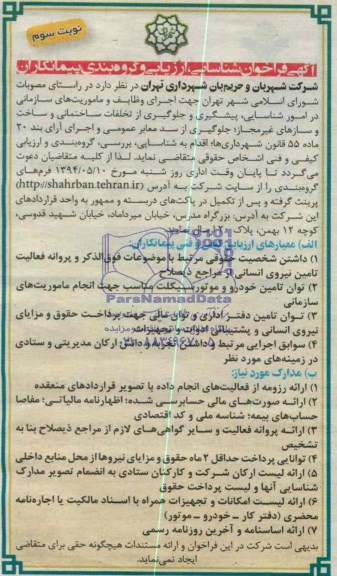 نوبت سوم
آگهی فراخوان شناسایی، ارزیابی و گروه‌بندی پیمانکاران
شرکت شهربان و حریم‌بان شهرداری تهران در نظر دارد در راستای مصوبات
شورای اسلامی شهر تهران جهت اجرای وظایف و ماموریت‌های سازمانی
در امور شناسایی، پیشگیری و جلوگیری از تخلفات ساختمانی و ساخت
و سازهای غیرمجاز؛ جلوگیری از سد معابر عمومی و اجرای آرای بند ۲۰
ماده ۵۵ قانون شهرداری‌ها؛ اقدام به شناسایی، بررسی، گروه‌بندی و ارزیابی
کیفی و فنی اشخاص حقوقی متقاضی نماید. لذا از کلیه متقاضیان دعوت
می‌گردد تا پایان وقت اداری روز شنبه مورخ ۱۳۹۴/۰۵/۱۰ فرم‌های
گروه‌بندی را از سایت شرکت به آدرس (http://shahrban.tehran.ir)
پرینت گرفته و پس از تکمیل در پاکت‌های دربسته و ممهور به واحد قراردادهای
این شرکت به آدرس: بزرگراه مدرس، خیابان میرداماد، خیابان شهید قدوسی،
کوچه ۱۲ بهمن، پلاک ارسال نمایند.
الف) معیارهای ارزیابی کیفی و فنی پیمانکاران:
۱) داشتن شخصیت حقوقی مرتبط با موضوعات فوق‌الذکر و پروانه فعالیت
تامین نیروی انسانی از مراجع ذیصلاح
۲) توان تامین خودرو و موتورسیکلت مناسب جهت انجام ماموریت‌های
سازمانی
۳) توان تامین دفتر اداری و توان مالی جهت پرداخت حقوق و مزایای
نیروی انسانی و پشتیبانی ادوات و تجهیزات
۴) سوابق اجرایی مرتبط و داشتن تجربه و دانش ارکان مدیریتی و ستادی
در زمینه‌های مورد نظر
ب) مدارک مورد نیاز:
۱) ارائه رزومه از فعالیت‌های انجام داده با تصویر قراردادهای منعقده
۲) ارائه صورت‌های مالی حسابرسی شده؛ اظهارنامه مالیاتی؛ مفاصا
حساب‌های بیمه؛ شناسه ملی و کد اقتصادی
۳) ارائه پروانه فعالیت و سایر گواهی‌های لازم از مراجع ذیصلاح بنا به
تشخیص
۴) توانایی پرداخت حداقل ۲ ماه حقوق و مزایای نیروها از محل منابع داخلی
۵) ارائه لیست ارکان شرکت و کارکنان ستادی به انضمام تصویر مدارک
شناسایی آنها و لیست پرداخت حقوق
۶) ارائه لیست امکانات و تجهیزات همراه با اسناد مالکیت یا اجاره‌نامه
محضری (دفتر کار ـ خودرو ـ موتور)
۷) ارائه اساسنامه و آخرین روزنامه رسمی
بدیهی است شرکت در این فراخوان و ارائه مستندات هیچگونه حقی برای متقاضی
ایجاد نمی‌نماید.
ParsNamadData